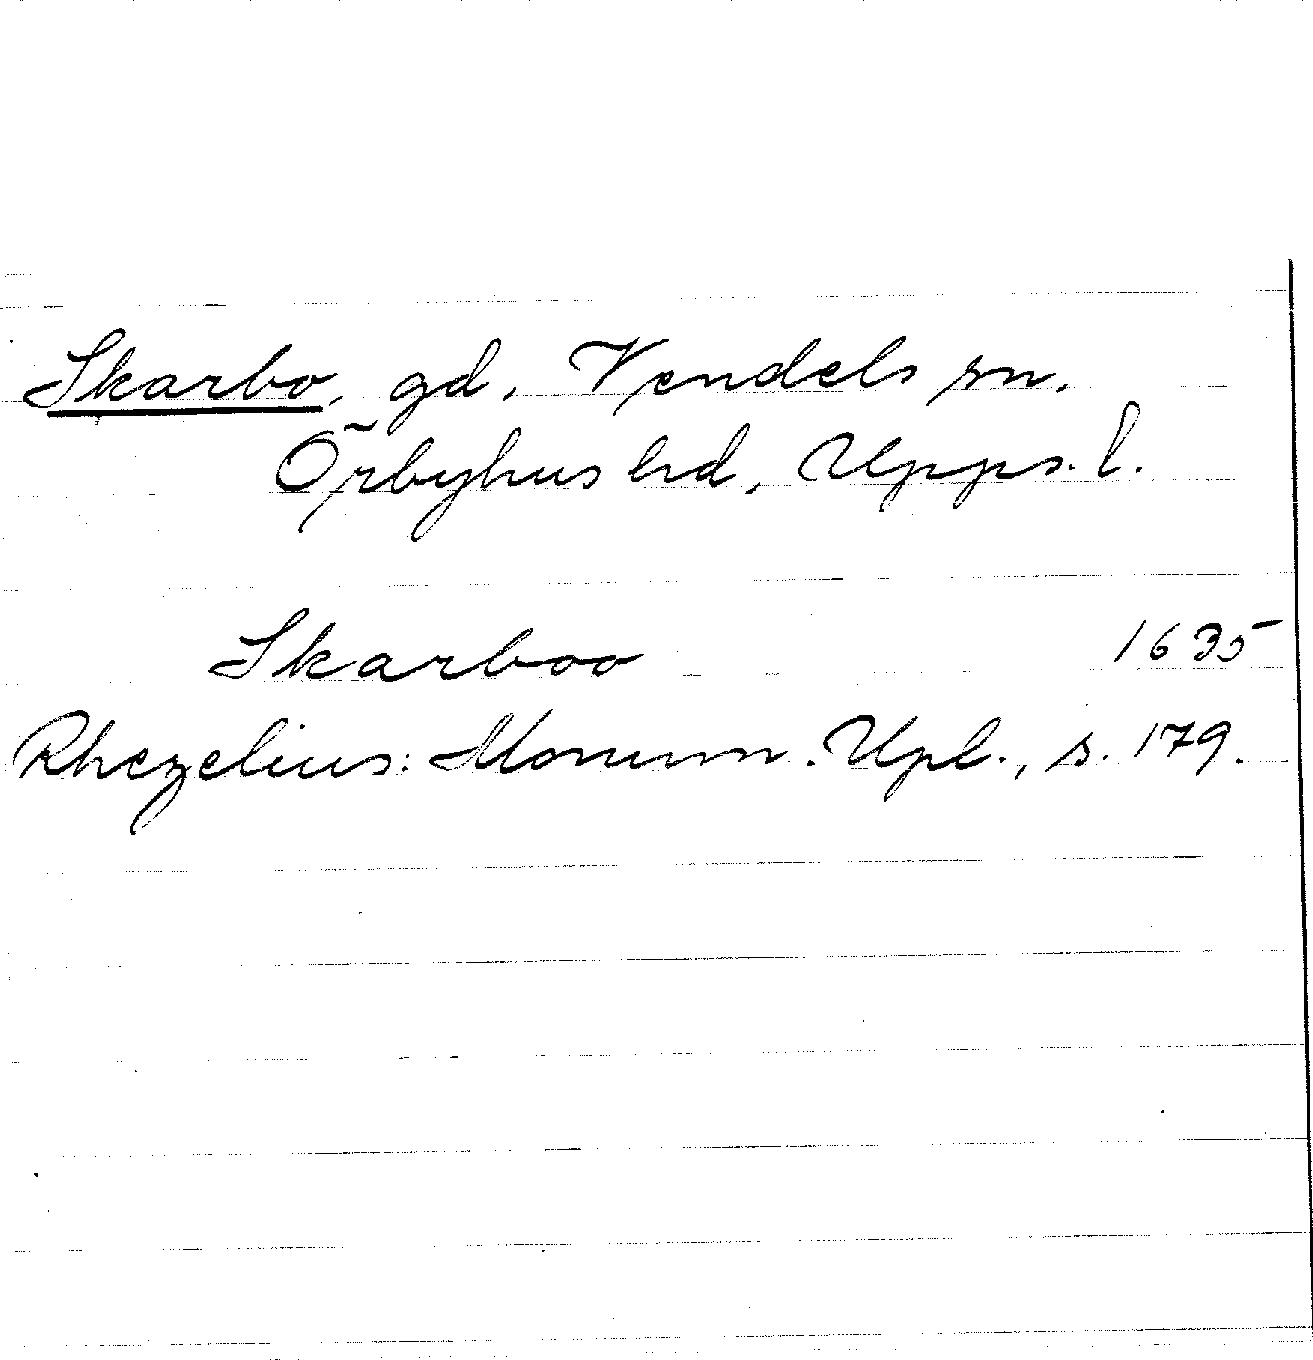 Skarbo, gd, Vendels sn,
Örbyhus hd, Upps. l.
Skarboo 1635
Rhezelius: Monum. Upl., s. 179.